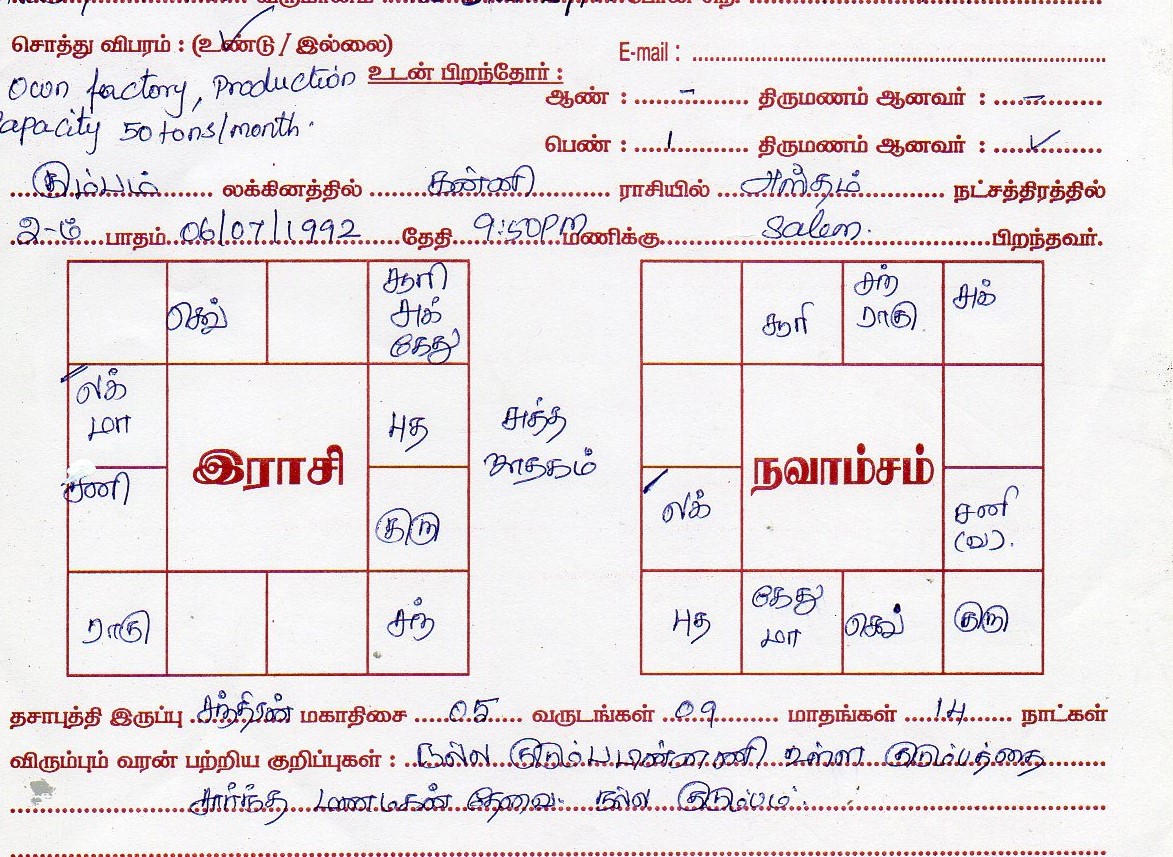 சொத்து விபரம் : (உண்டு / இல்லை)
E-mail :
Own factory, Production
உடன் பிறந்தோர் :
ஆண் : - திருமணம் ஆனவர் : -
Capacity 50 tons/month.
பெண் : 1 திருமணம் ஆனவர் : ✓
கும்பம் லக்கினத்தில் கன்னி ராசியில் அஸ்தம் நட்சத்திரத்தில்
2-ம் பாதம் 06/07/1992 தேதி 9:50PM மணிக்கு Salem. பிறந்தவர்.
செவ்
சூரி
சுக்
கேது
லக்
மா
புத
சனி
குரு
ராகு
சந்
இராசி
சுத்த
ஜாதகம்
சூரி
சந்
ராகு
சுக்
லக்
சனி
(வ).
புத
கேது
மா
செவ்
குரு
நவாம்சம்
தசாபுத்தி இருப்பு சந்திரன் மகாதிசை 05 வருடங்கள் 09 மாதங்கள் 14 நாட்கள்
விரும்பும் வரன் பற்றிய குறிப்புகள் : நல்ல குடும்ப உள்ள குடும்பத்தை
சார்ந்த மணமகன் தேவை. நல்ல குடும்பம்.